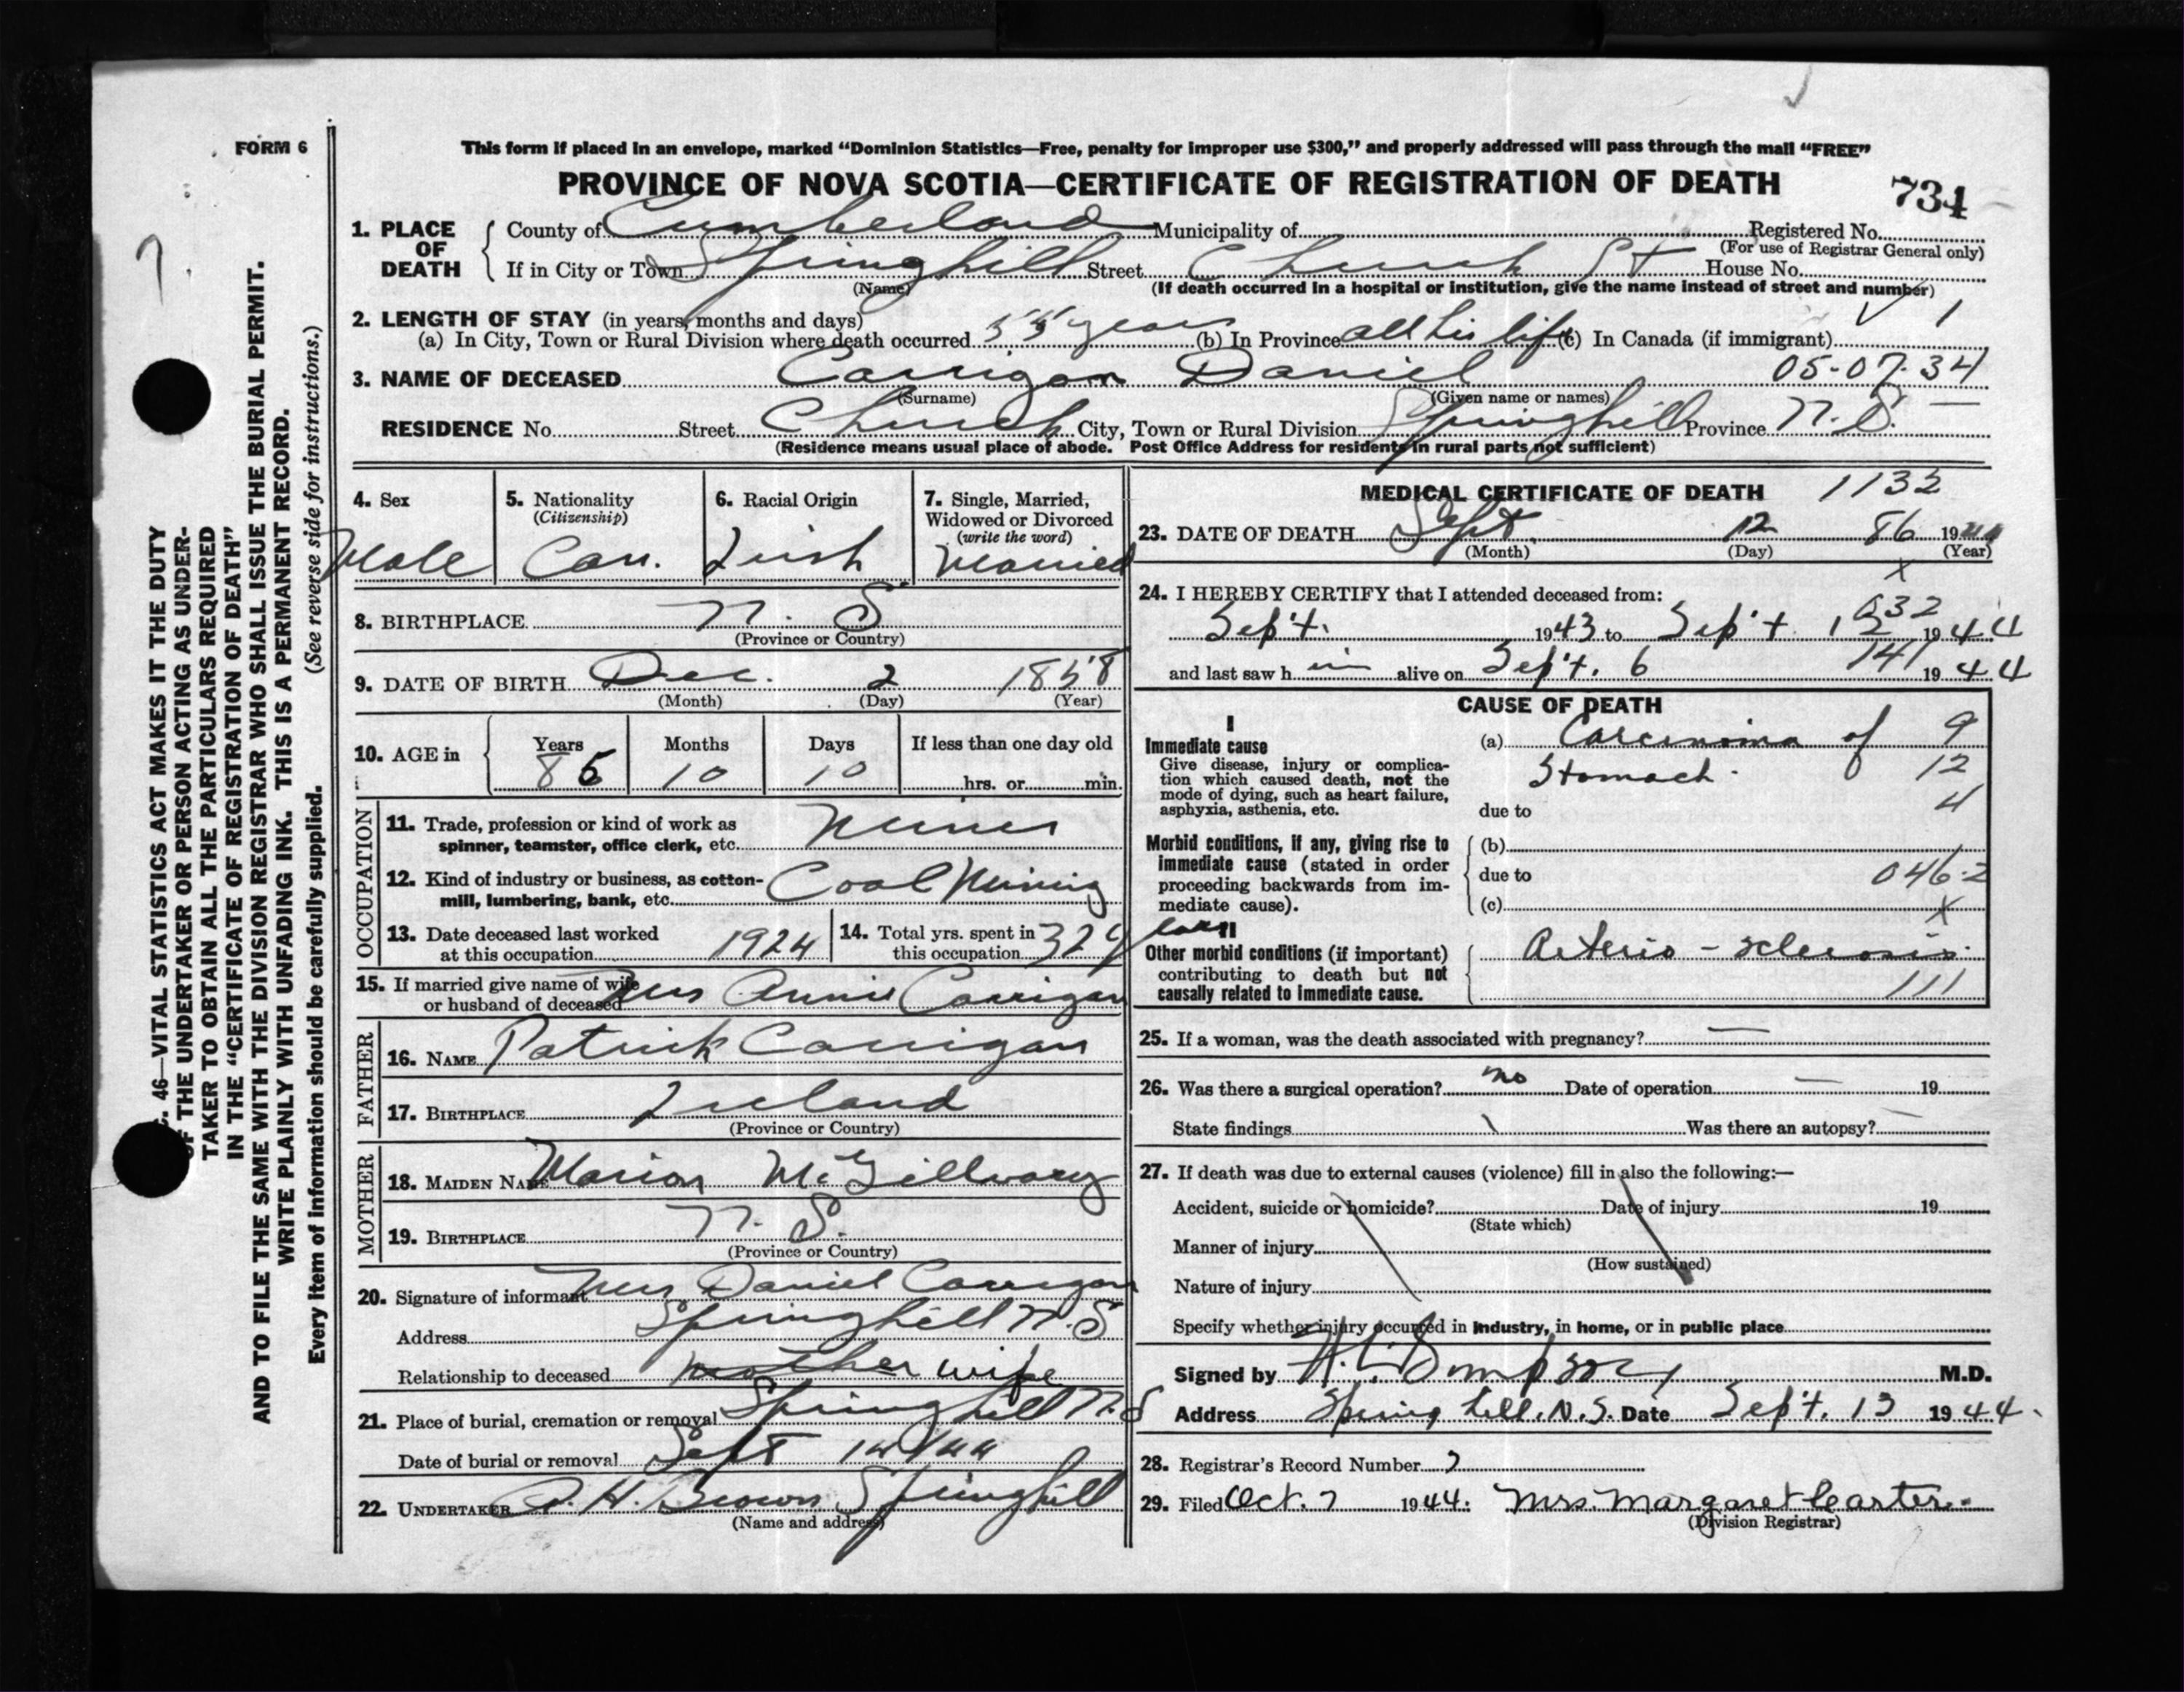 FORM 6
This form if placed in an envelope, marked “Dominion Statistics—Free, penalty for improper use $300,” and properly addressed will pass through the mail “FREE”
PROVINCE OF NOVA SCOTIA—CERTIFICATE OF REGISTRATION OF DEATH
734
1. PLACE OF DEATH { County of Cumberland Municipality of Registered No.
(For use of Registrar General only)
If in City or Town Springhill Street Church St House No.
(Name) (If death occurred in a hospital or institution, give the name instead of street and number)
2. LENGTH OF STAY (in years, months and days) 1
(a) In City, Town or Rural Division where death occurred 55 years (b) In Province all his life (c) In Canada (if immigrant)
3. NAME OF DECEASED Carrigan Daniel 05-07-34
(Surname) (Given name or names)
RESIDENCE No. Street Church City, Town or Rural Division Springhill Province N.S.
(Residence means usual place of abode. Post Office Address for residents in rural parts not sufficient)
4. Sex Male
5. Nationality (Citizenship) Can.
6. Racial Origin Irish
7. Single, Married, Widowed or Divorced (write the word) Married
8. BIRTHPLACE N. S.
(Province or Country)
9. DATE OF BIRTH Dec. 2 1858
(Month) (Day) (Year)
10. AGE in { Years 85 Months 10 Days 10 If less than one day old
hrs. or min.
OCCUPATION
11. Trade, profession or kind of work as
spinner, teamster, office clerk, etc. Miner
12. Kind of industry or business, as cotton-
mill, lumbering, bank, etc. Coal Mining
13. Date deceased last worked
at this occupation 1924
14. Total yrs. spent in
this occupation 32 years
15. If married give name of wife
or husband of deceased Mrs Annie Carrigan
FATHER
16. NAME Patrick Carrigan
17. BIRTHPLACE Ireland
(Province or Country)
MOTHER
18. MAIDEN NAME Marion McGillvary
19. BIRTHPLACE N. S.
(Province or Country)
20. Signature of informant Mrs Daniel Carrigan
Address Springhill N.S
Relationship to deceased mother wife
21. Place of burial, cremation or removal Springhill N.S
Date of burial or removal Sept 14/44
22. UNDERTAKER H. Brown Springhill
(Name and address)
MEDICAL CERTIFICATE OF DEATH 1132
23. DATE OF DEATH Sept. 12 86 1944
(Month) (Day) (Year)
x
24. I HEREBY CERTIFY that I attended deceased from:
632
Sep't. 1943 to Sep't. 12 1944
and last saw him alive on Sep't. 6 141 1944
CAUSE OF DEATH
I
Immediate cause
Give disease, injury or complica-
tion which caused death, not the
mode of dying, such as heart failure,
asphyxia, asthenia, etc.
(a) Carcinoma of 9
Stomach. 12
4
due to
Morbid conditions, if any, giving rise to
immediate cause (stated in order
proceeding backwards from im-
mediate cause).
(b)
due to 046.2
(c) x
II
Other morbid conditions (if important)
contributing to death but not
causally related to immediate cause.
Arterio-sclerosis.
111
25. If a woman, was the death associated with pregnancy? —
26. Was there a surgical operation? no Date of operation — 19
State findings Was there an autopsy? —
27. If death was due to external causes (violence) fill in also the following:—
Accident, suicide or homicide? Date of injury 19
(State which)
Manner of injury
(How sustained)
Nature of injury
Specify whether injury occurred in industry, in home, or in public place
Signed by M.D.
Address Springhill, N.S. Date Sep't. 13 1944.
28. Registrar's Record Number 7
29. Filed Oct. 7 1944. Mrs. Margaret Carter.
(Division Registrar)
7.
C. 46—VITAL STATISTICS ACT MAKES IT THE DUTY
OF THE UNDERTAKER OR PERSON ACTING AS UNDER-
TAKER TO OBTAIN ALL THE PARTICULARS REQUIRED
IN THE “CERTIFICATE OF REGISTRATION OF DEATH”
AND TO FILE THE SAME WITH THE DIVISION REGISTRAR WHO SHALL ISSUE THE BURIAL PERMIT.
WRITE PLAINLY WITH UNFADING INK. THIS IS A PERMANENT RECORD.
Every item of information should be carefully supplied. (See reverse side for instructions.)